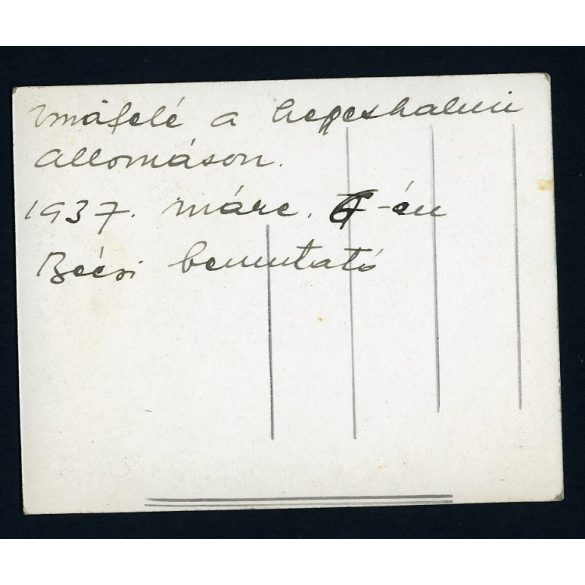 a hegyeshalmi
állomáson.
1937. márc. 6-én
Bécsi bemutató